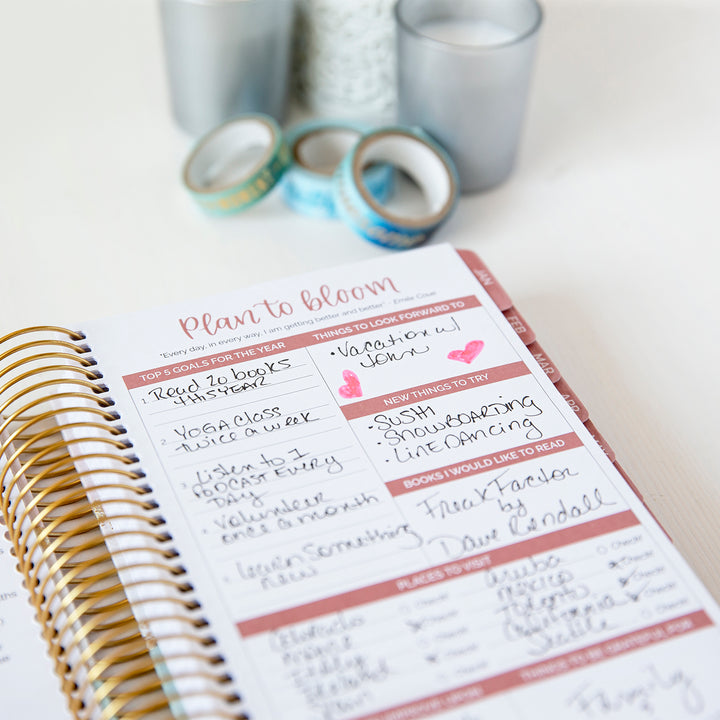 Plan to bloom
"Every day, in every way, I am getting better and better" - Emile Coué
TOP 5 GOALS FOR THE YEAR
1. Read 20 books
this YEAR
YOGA Class
twice a week
Listen to 1
PODCAST Every
Day
Volunteer
once a month
Learn Something
new
THINGS TO LOOK FORWARD TO
• Vacation w/
John
NEW THINGS TO TRY
• SUSHI
• SNOWBOARDING
• LINE DANCING
BOOKS I WOULD LIKE TO READ
Freak Factor
by
Dave Rendall
PLACES TO VISIT
Colorado
France
Aruba
Mexico
Toronto
California
Seattle
Check!
Check!
Check!
Check!
THINGS TO BE GRATEFUL FOR
Family
JAN
FEB
MAR
APR